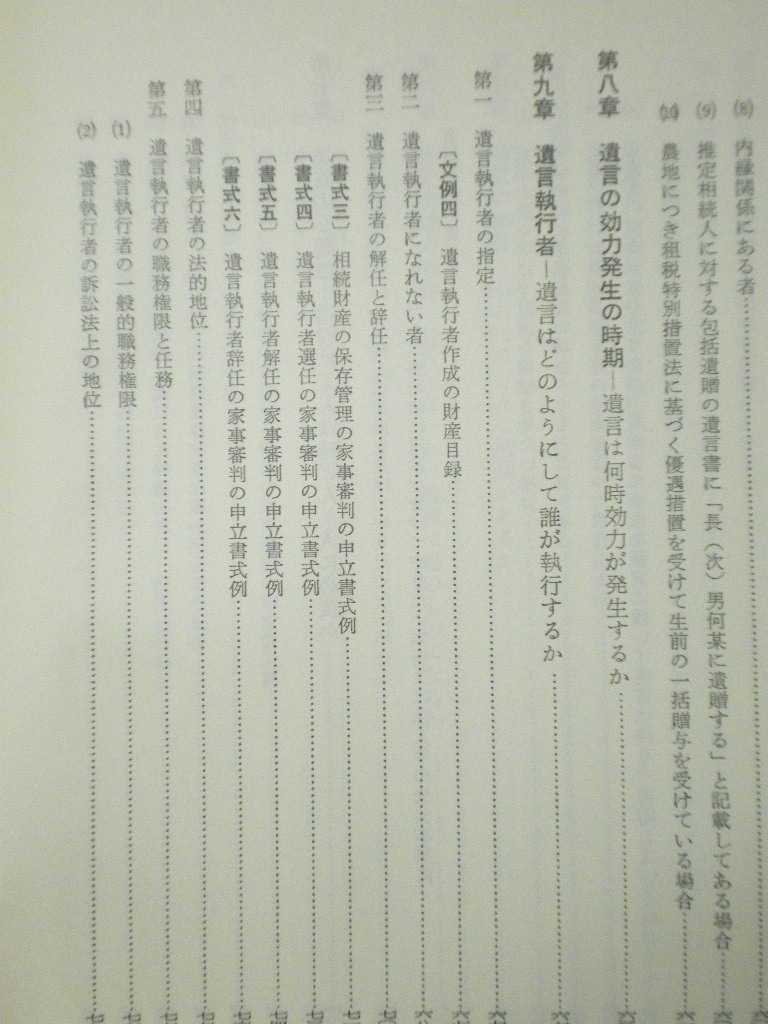 (8) 内縁関係にある者
(9) 推定相続人に対する包括遺贈の遺言書に「長(次)男何某に遺贈する」と記載してある場合
(10) 農地につき租税特別措置法に基づく優遇措置を受けて生前の一括贈与を受けている場合
第八章 遺言の効力発生の時期―遺言は何時効力が発生するか
第九章 遺言執行者―遺言はどのようにして誰が執行するか
第一 遺言執行者の指定
〔文例四〕 遺言執行者作成の財産目録
第二 遺言執行者になれない者
第三 遺言執行者の解任と辞任
〔書式三〕 相続財産の保存管理の家事審判の申立書式例
〔書式四〕 遺言執行者選任の家事審判の申立書式例
〔書式五〕 遺言執行者解任の家事審判の申立書式例
〔書式六〕 遺言執行者辞任の家事審判の申立書式例
第四 遺言執行者の法的地位
第五 遺言執行者の職務権限と任務
(1) 遺言執行者の一般的職務権限
(2) 遺言執行者の訴訟法上の地位